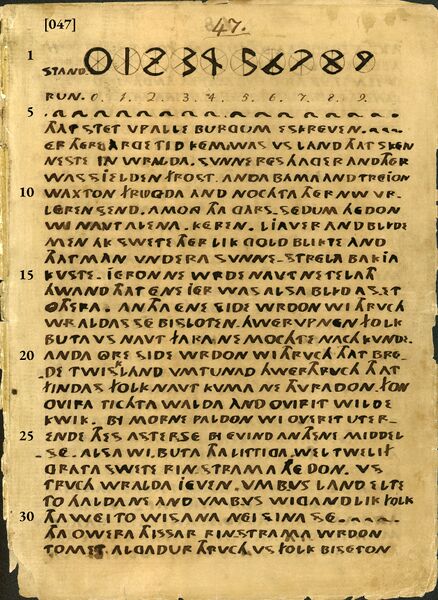 [047]
47.
1
STAND. 0 1 2 3 4 5 6 7 8 9
RUN. 0. 1. 2. 3. 4. 5. 6. 7. 8. 9.
5
THAT STET VPALLE BURGUM ESKREVEN.
ER THERE ARGE TID KEM WAS VS LAND THAT SKEN
NESTE IN WRALDA. SVNNE RES HAGER AND THER
WAS SIELDEN FROST. ANDA BAMA AND TREION
10 WAXTON FRUGDA AND NOCHTA THER NW VR_
LEREN SEND. AMONG THA GARS_SEDUM HEDON
WI NAVT ALENA. KEREN. LIAVER AND BLYDE
MEN AK SWETE THER LIK GOLD BLIKTE AND
THAT MAN VNDERA SVNNE_STRELA BAKIA
15 KVSTE. IERON NE WRDE NAVT NE TELATH
HWAND THAT ENE IER WAS ALSA BLYD AS_ET
OTHERA. ANTHA ENE SIDE WRDON WI THRVCH
WRALDAS SE BISLOTEN. HWERVP NEN FOLK
BUTA VS NAVT FARA NE MOCHTE NACH KVNDE.
20 ANDA ORE SIDE WRDON WI THRVCH THAT BRE_
DE TWISKLAND VMTUNAD HWERTHRVCH THAT
FINDAS FOLK NAVT KUMA NE THVRADON. FON
OVIRA TICHTA WALDA AND OVIR IT WILDE
KWIK. BI MORNE PALDON WI OVER IT UTER_
25 ENDE THES ASTERSE BI EVIND AN THENE MIDDEL
_SE. ALSA WI. BUTA THA LITTIGA. WEL TWELIF
GRATA SWETE RINSTRAMA HEDON. VS
THRVCH WRALDA IEVEN. VMB VS LAND ELTE
TO HALDANE AND VMB VS WIGANDLIK FOLK
30 THA WEI TO WISANA NEI SINA SE.
THA OWERA THISSAR RINSTRAMA WRDON
TOMET. ALGADUR THRVCH VS FOLK BISETON